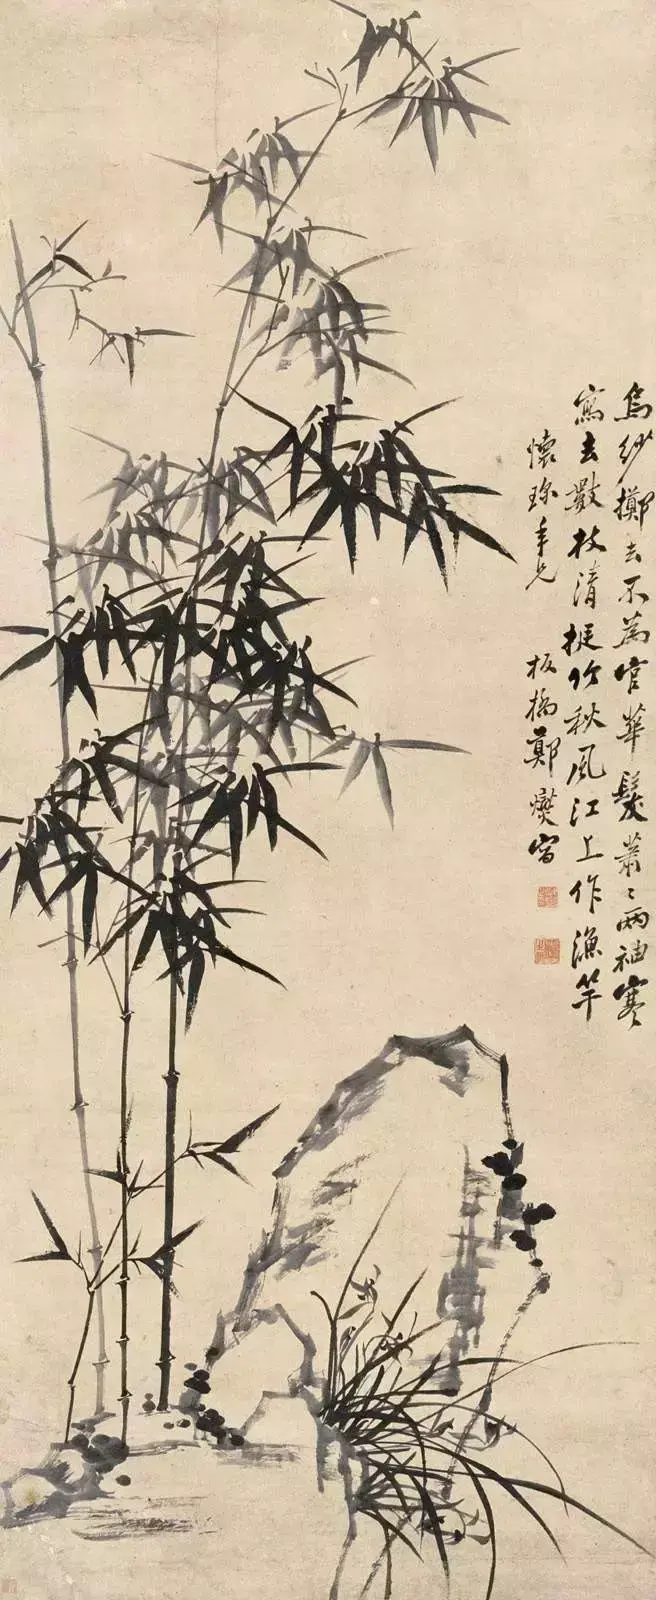 烏紗擲去不為官華髮蕭〻兩袖寒
寫去數枝清挺竹秋風江上作漁竿
懷年兄 板橋鄭燮寫